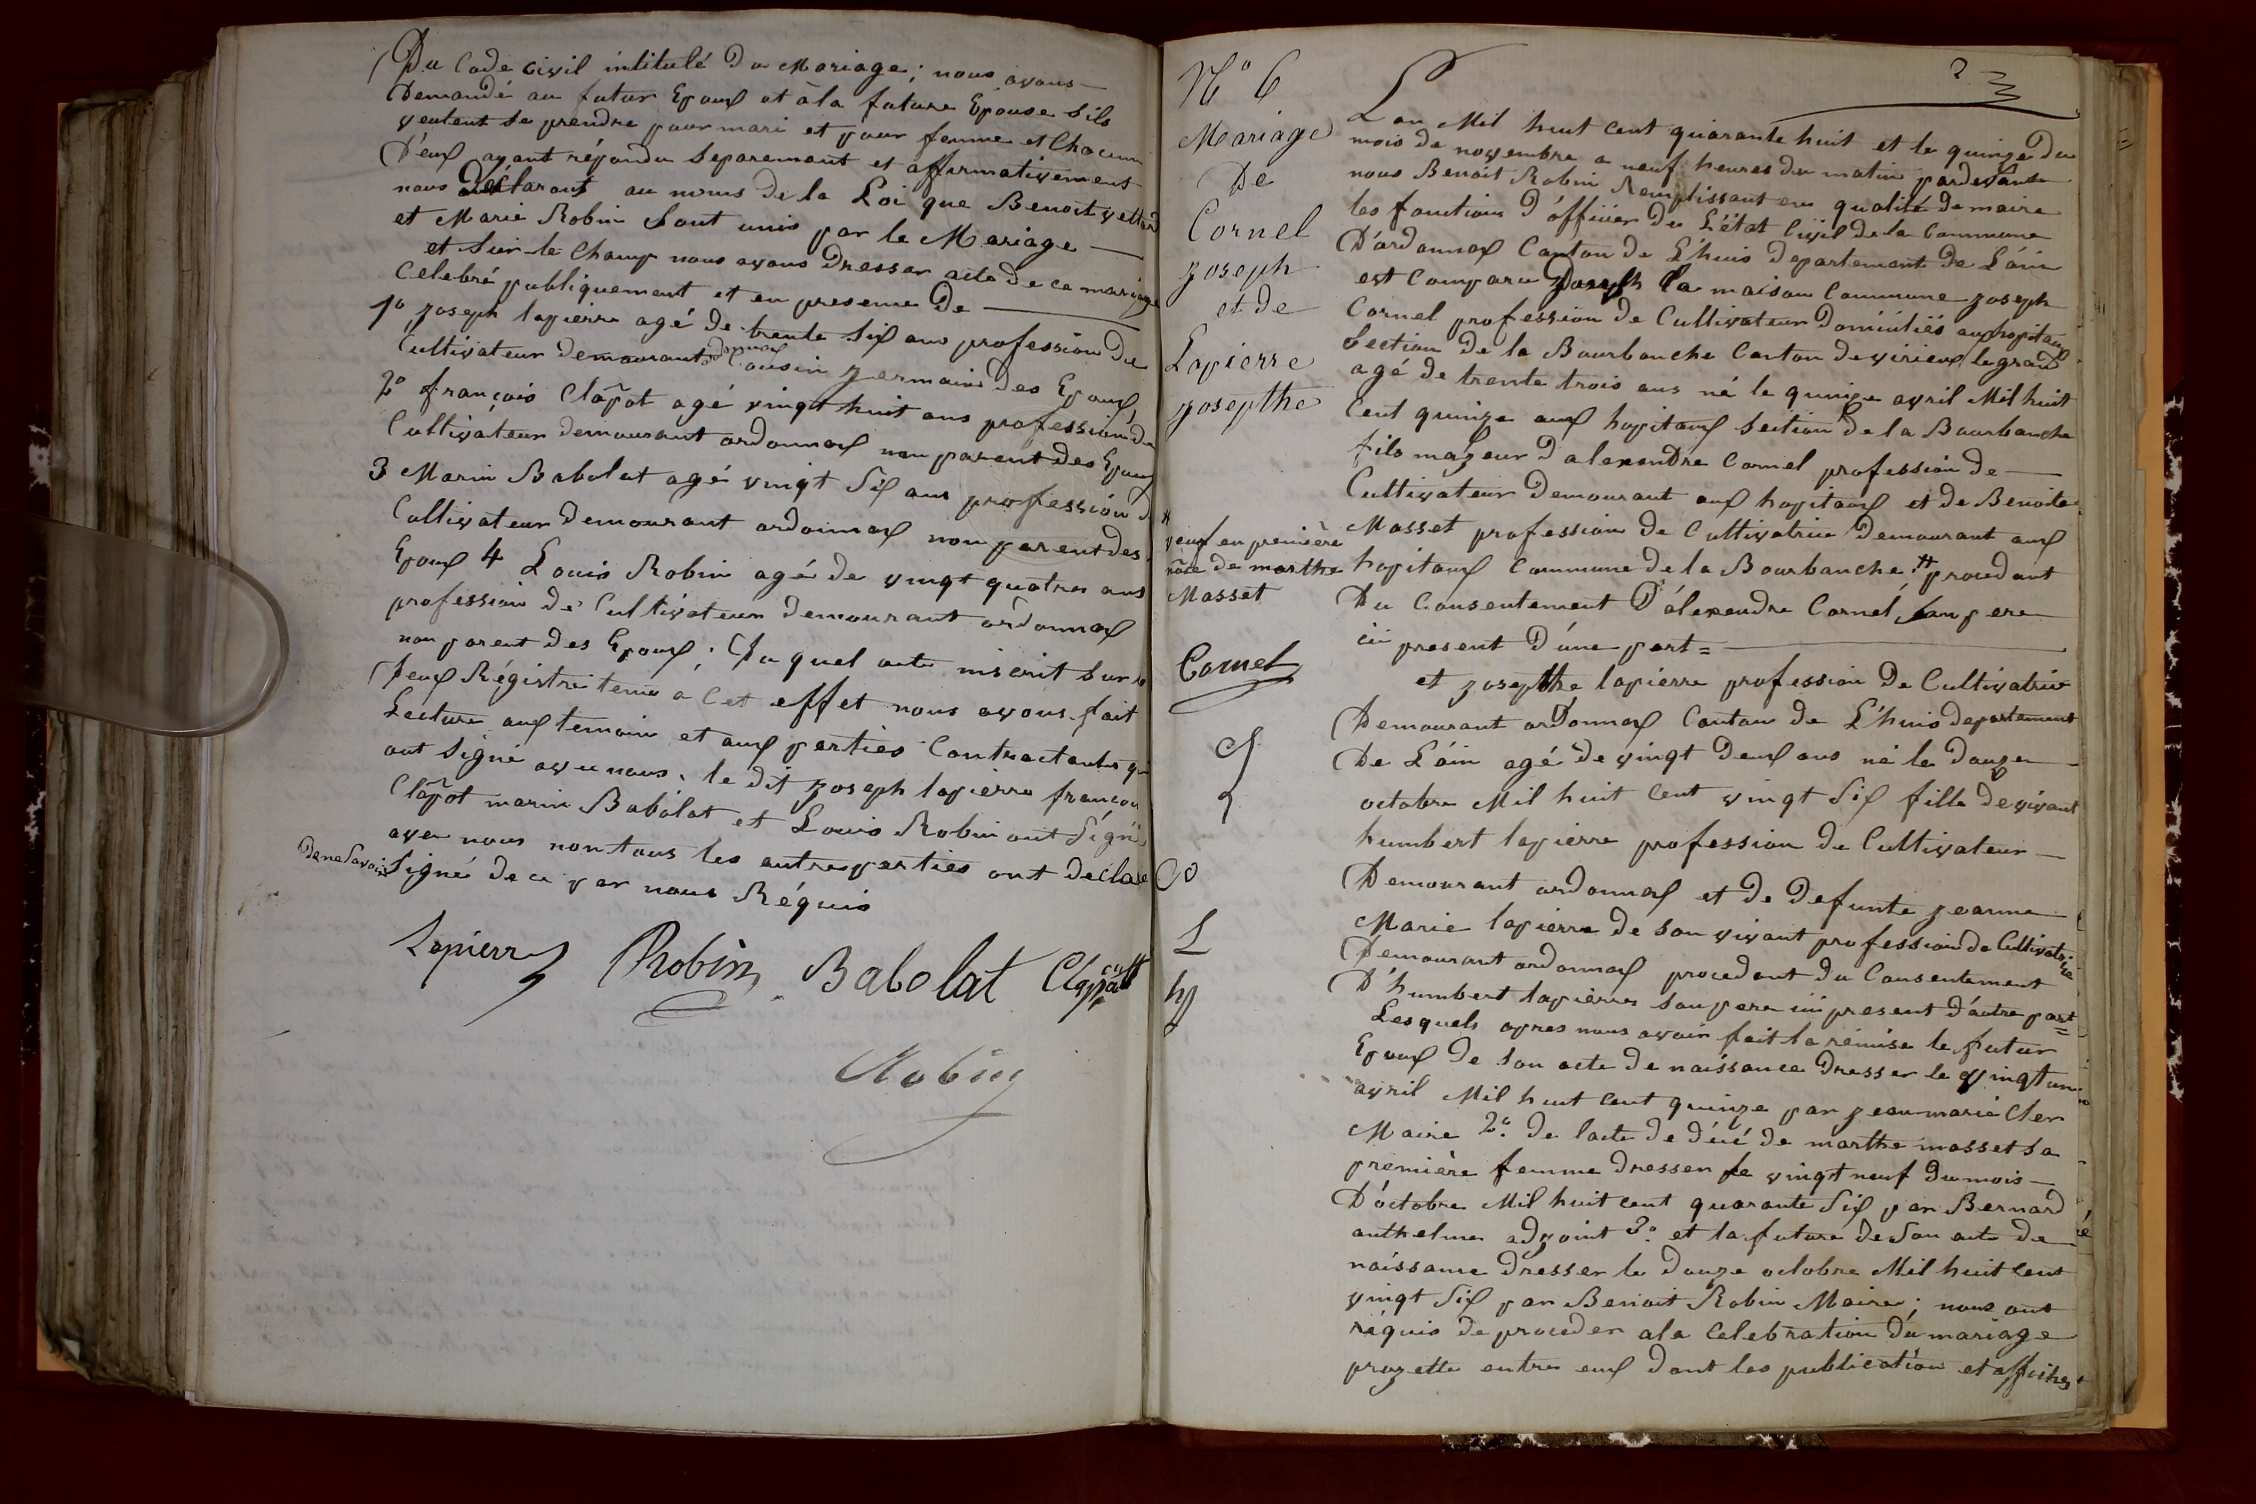 Du Code civil intitulé Du Mariage; nous avons
Demandé au futur Epoux et à la future Epouse Sils
veulent se prendre pour mari et pour femme et Chacun
D'eux ayant répondu Separement et affirmativement
nous Déclarons au noms de la Loi que Benoit vettard
et Marie Robin Sont unis par le Mariage
et Sur-le Champ nous avons Dresser acte de ce mariage
Celebré publiquement et en presence De
1º Joseph lapierre agé De trente Six ans profession De
Cultivateur demeurant ordonnax Cousin germain des Epoux
2º françois Clapot agé vingt huit ans profession de
Cultivateur demeurant ordonnax non parent des Epoux
3 Marin Babolat agé vingt Six ans profession d
Cultivateur Demeurant ordonnax non parent des
Epoux 4 Louis Robin agé de vingt quatres ans
profession de Cultivateur demeurant ordonnax
non parent des Epoux; Du quel acte inscrit Sur le
Deux Régistre tenu à Cet effet nous avons fait
Lecture aux temoin et aux perties Contractantes qui
ont Signé avec nous. le dit Joseph lapierre françois
Clapot marin Babolat et Louis Robin ont Signé
avec nous non tous les autres perties ont declaré
De ne Savoir Signé de ce par nous Réquis
Lapierre Robin Babolat Clappot
Robin
Nº 6
Mariage
De
Cornel
Joseph
et de
Lapierre
Josepthe
#
veuf en première
noce de marthe
Masset
Cornel
J
L
hp
2
L an Mil huit cent quarante huit et le quinze du
mois de novembre a neuf heures du matin pardevant
nous Benoit Robin Remplissant en qualité de maire
les fonctions d'officier de L'état Civil de la Commune
D'ordonnax Canton de L'huis departement de L'ain
est Comparu la maison Commune Joseph
Cornel profession de Cultivateur Domicilié aux hopitaux
Section de la Bourbanche Canton de virieux le grand
agé de trente trois ans né le quinze avril Mil huit
Cent quinze aux hopitaux Section De la Bourbanche
fils majeur D'alexendre Cornel profession de
Cultivateur Demeurant aux hopitaux et de Benoite
Masset profession de Cultivatrice Demeurant aux
hopitaux Commune de la Bourbanche # procedant
Du Consentement D'alexendre Cornel, Son pere
ici present D'une part =
et Josepthe lapierre profession De Cultivatrice
Demeurant ordonnax Canton de L'huis departement
De L'ain agé de vingt Deux ans né le Douze
octobre Mil huit Cent vingt Six fille De vivant
humbert lapierre profession de Cultivateur
Demeurant ordonnax et de Defunte Jeanne
Marie lapierre de Son vivant profession de Cultivatrice
Demeurant ordonnax procedent du Consentement
D'humbert lapierre Son pere ici present D'autre part =
Lesquels apres nous avoir fait la remise le futur
Epoux De Son acte De naissance Dresser le vingt un
avril Mil huit cent quinze par Jean marie Cler
Maire 2º. De lacte de décé de marthe masset sa
première femme Dresser le vingt neuf Du mois
D'octobre Mil huit cent quarante Six par Bernard
anthelme adjoint 3º. et la future de Son acte de
naissance Dresser le Douze octobre Mil huit cent
vingt Six par Benoit Robin Maire; nous ont
réquis De proceder a la Celebration du mariage
projette entre eux Dont les publication et affiches